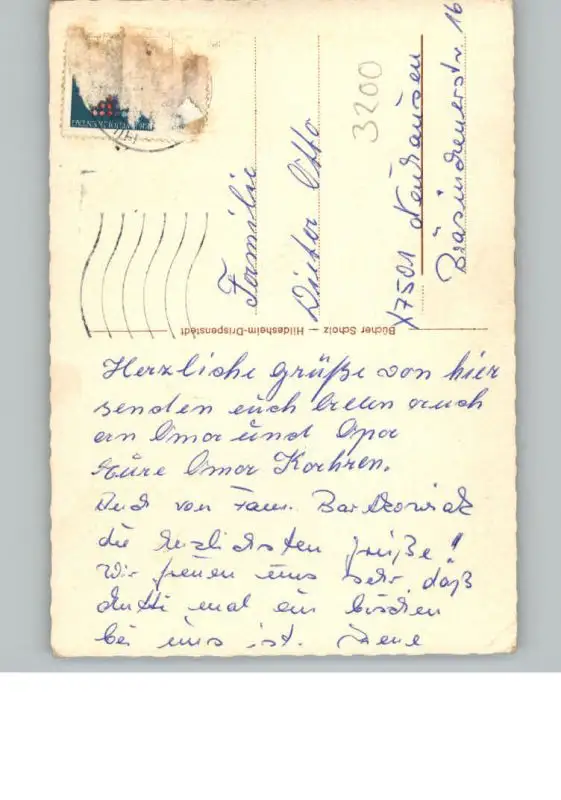 Herzliche Grüße von hier
senden euch allen auch
an Oma und Opa
Eure Oma Kathren.
Und von Fam. Bartkowiak
die herzlichsten Grüße!
Wir freuen uns sehr, daß
Mutti mal ein bischen
bei uns ist. Irene
Familie
Dieter Otto
X7501 Neuhausen
Bräsinchenerstr. 16
3200
Bücher Scholz — Hildesheim-Drispenstedt